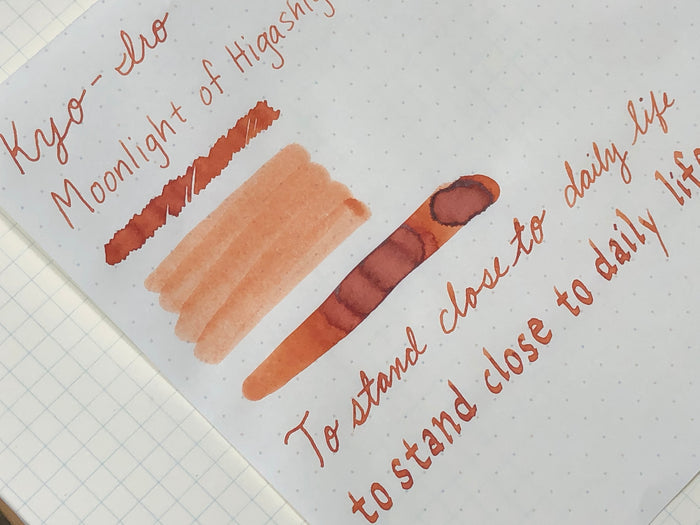 Kyo-Iro
Moonlight of Higashiy
To stand close to daily life
to stand close to daily life